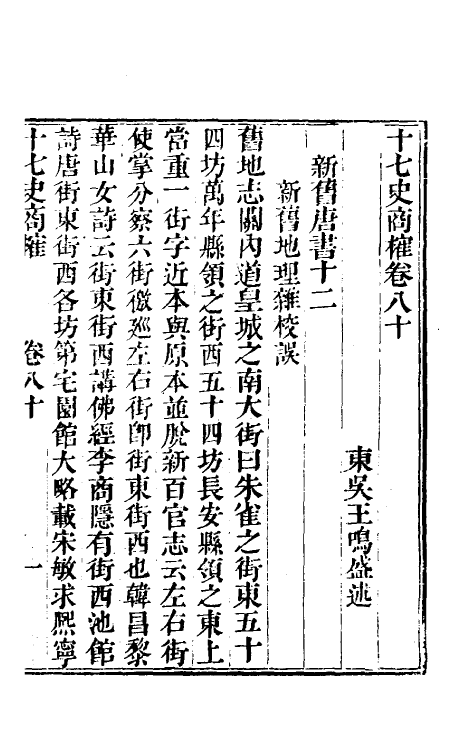 十七史商榷卷八十
東吳王鳴盛述
新舊唐書十二
新舊地理雜校誤
舊地志關內道皇城之南大街曰朱雀之街東五十
四坊萬年縣領之街西五十四坊長安縣領之東上
當重一街字近本與原本並脫新百官志云左右街
使掌分察六街徼廵左右街卽街東街西也韓昌黎
華山女詩云街東街西講佛經李商隱有街西池館
詩唐街東街西各坊第宅園館大略載宋敏求熙寧
十七史商榷 卷八十 一